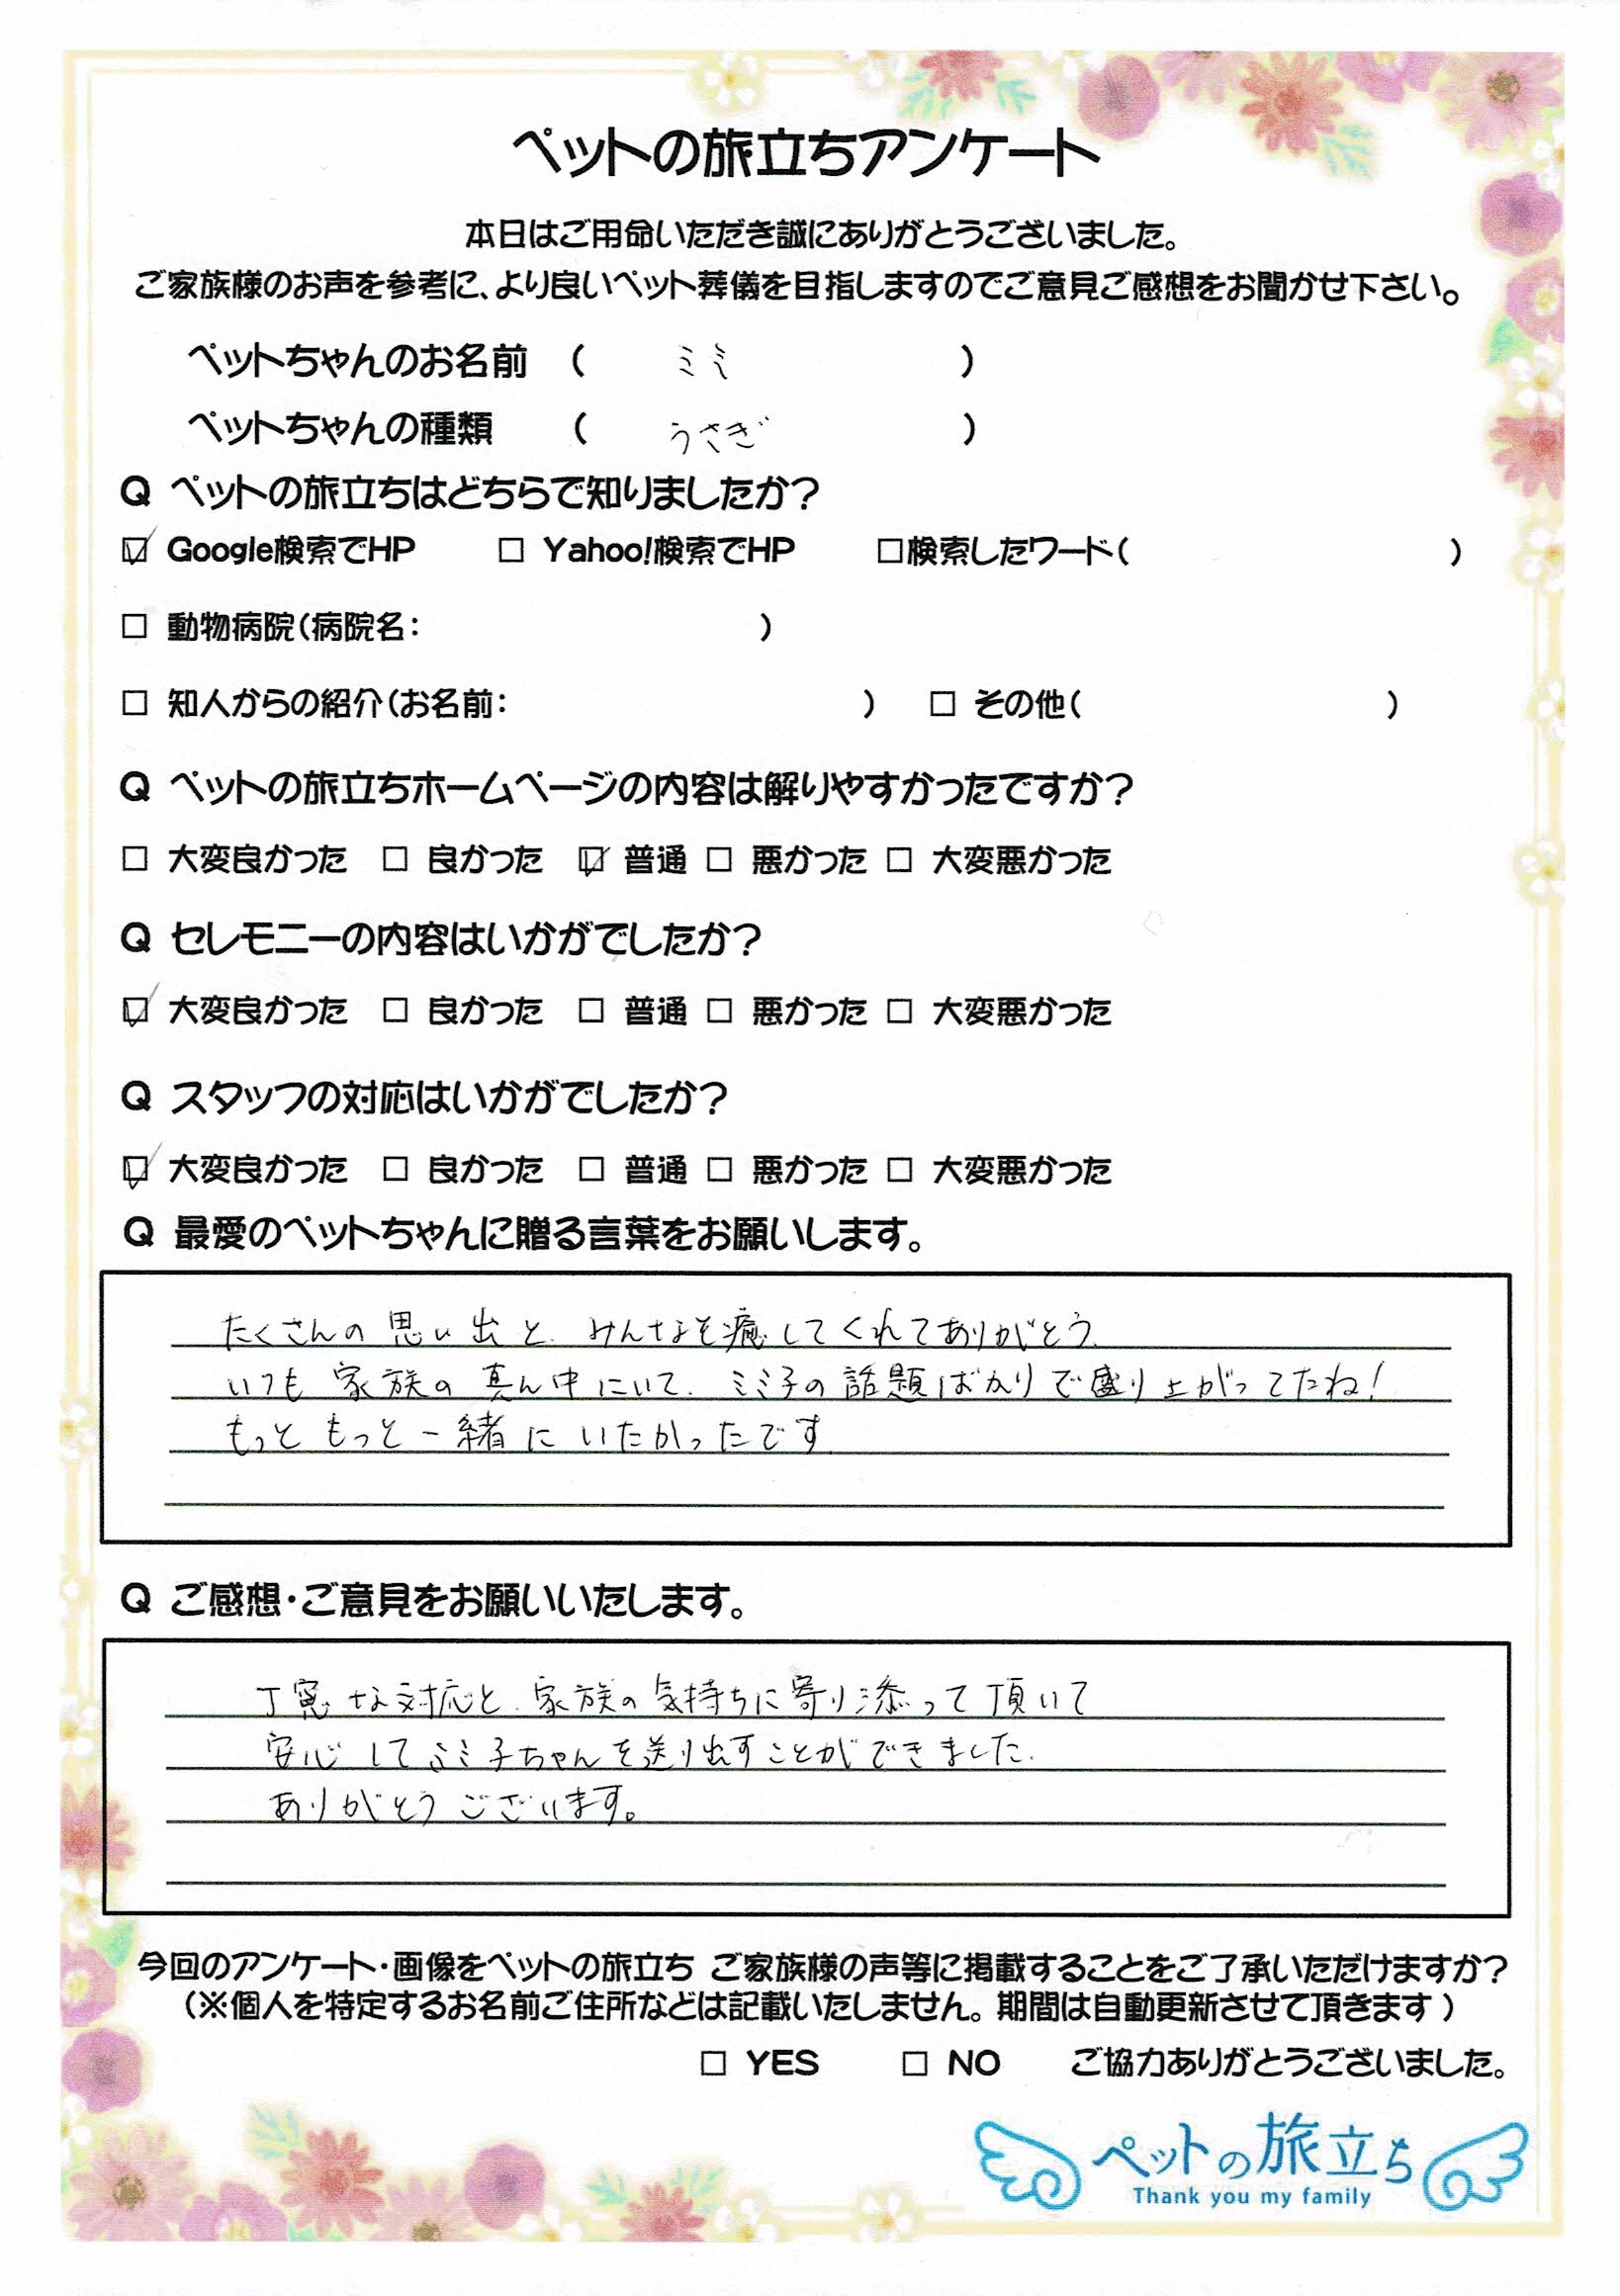 ペットの旅立ちアンケート
本日はご用命いただき誠にありがとうございました。
ご家族様のお声を参考に、より良いペット葬儀を目指しますのでご意見ご感想をお聞かせ下さい。
ペットちゃんのお名前 ( ミミ )
ペットちゃんの種類 ( うさぎ )
Q ペットの旅立ちはどちらで知りましたか?
☑ Google検索でHP □ Yahoo!検索でHP □検索したワード( )
□ 動物病院(病院名: )
□ 知人からの紹介(お名前: ) □ その他( )
Q ペットの旅立ちホームページの内容は解りやすかったですか?
□ 大変良かった □ 良かった ☑ 普通 □ 悪かった □ 大変悪かった
Q セレモニーの内容はいかがでしたか?
☑ 大変良かった □ 良かった □ 普通 □ 悪かった □ 大変悪かった
Q スタッフの対応はいかがでしたか?
☑ 大変良かった □ 良かった □ 普通 □ 悪かった □ 大変悪かった
Q 最愛のペットちゃんに贈る言葉をお願いします。
たくさんの思い出と、みんなを癒してくれてありがとう。
いつも家族の真ん中にいて、ミミ子の話題ばかりで盛り上がってたね!
もっともっと一緒にいたかったです
Q ご感想・ご意見をお願いいたします。
丁寧な対応と、家族の気持ちに寄り添って頂いて
安心してミミ子ちゃんを送り出すことができました。
ありがとうございます。
今回のアンケート・画像をペットの旅立ち ご家族様の声等に掲載することをご了承いただけますか?
(※個人を特定するお名前ご住所などは記載いたしません。期間は自動更新させて頂きます)
□ YES □ NO ご協力ありがとうございました。
ペットの旅立ち
Thank you my family